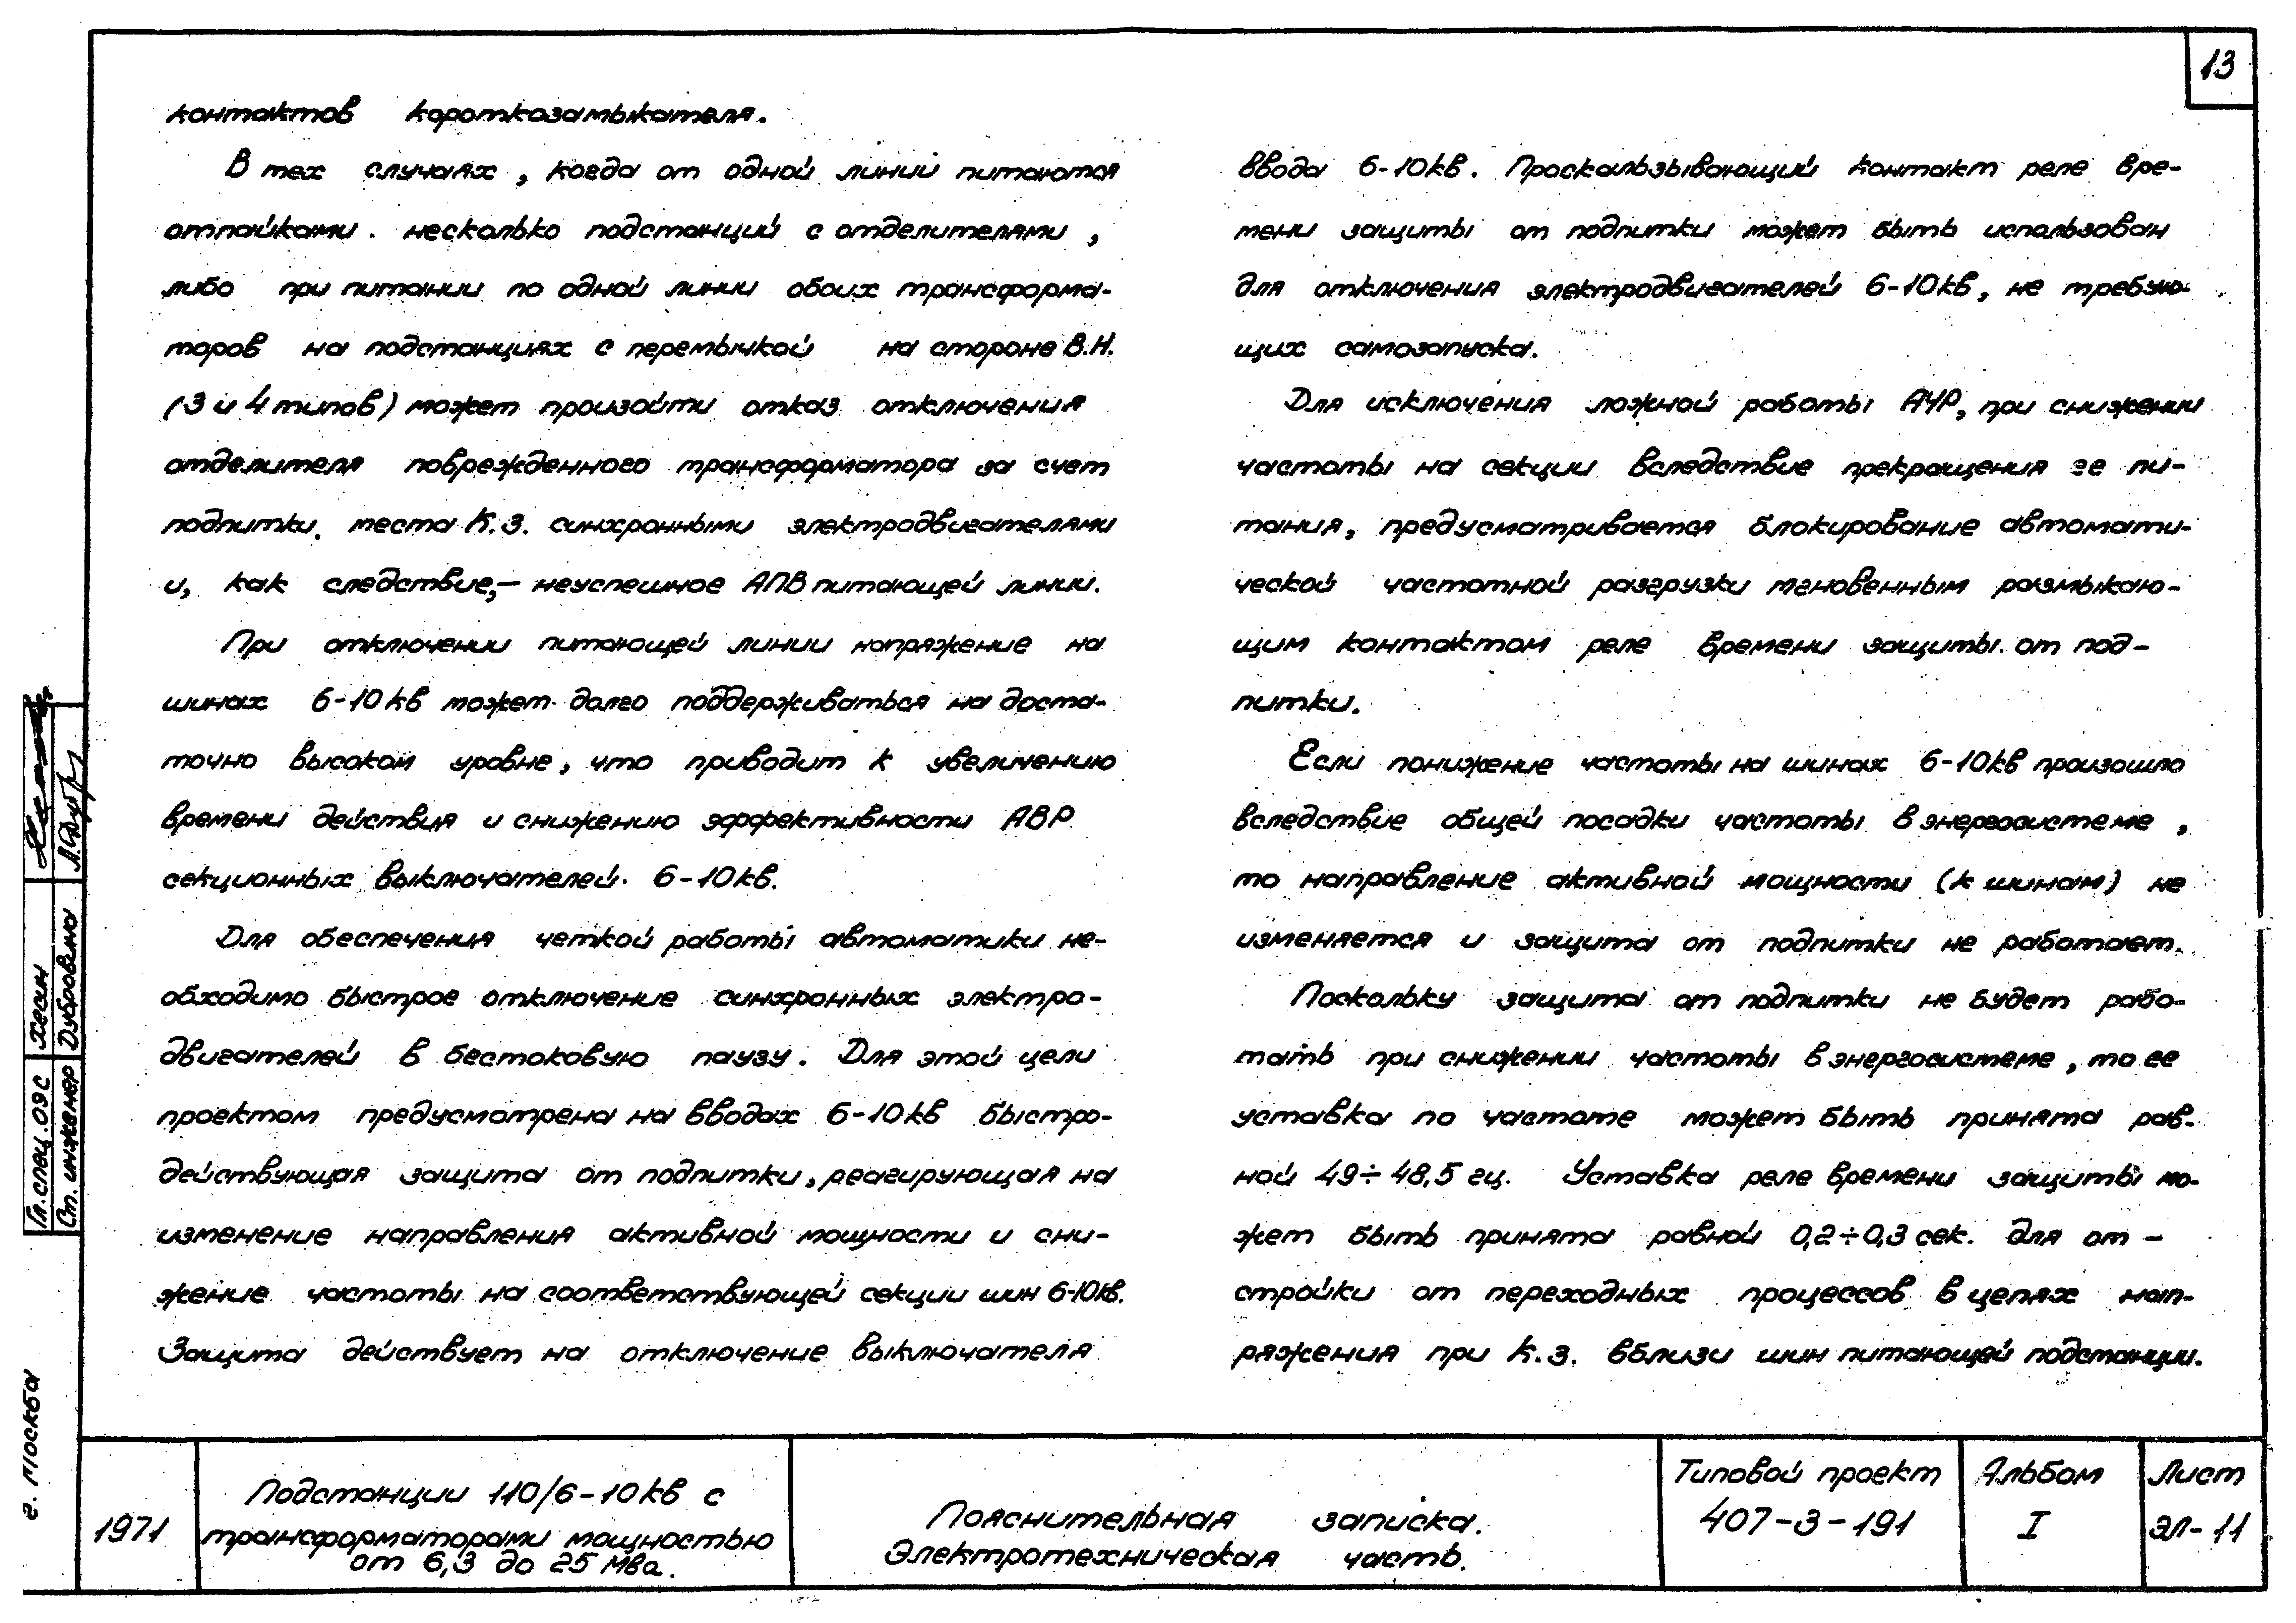 13
контактов короткозамыкателя.
В тех случаях, когда от одной линий питаются
отпайками. несколько подстанций с отделителями,
либо при питании по одной линии обоих трансформа-
торов на подстанциях с перемычкой на стороне В.Н.
(3 и 4 типов) может произойти отказ отключения
отделителя поврежденного трансформатора за счет
подпитки места К.З. синхронными электродвигателями
и, как следствие,- неуспешное АПВ питающей линии.
При отключении питающей линии напряжение на
шинах 6-10кв может долго поддерживаться на доста-
точно высоком уровне, что приводит к увеличению
времени действия и снижению эффективности АВР
секционных выключателей. 6-10кв.
Для обеспечения четкой работы автоматики не-
обходимо быстрое отключение синхронных электро-
двигателей в бестоковую паузу. Для этой цели
проектом предусмотрена на вводах 6-10кв быстро-
действующая защита от подпитки, реагирующая на
изменение направления активной мощности и сни-
жение частоты на соответствующей секции шин 6-10кв.
Защита действует на отключение выключателя
ввода 6-10кв. Проскальзывающий контакт реле вре-
мени защиты от подпитки может быть использован
для отключения электродвигателей 6-10кв, не требую-
щих самозапуска.
Для исключения ложной работы АЧР, при снижении
частоты на секции вследствие прекращения ее пи-
тания, предусматривается блокирование автомати-
ческой частотной разгрузки мгновенным размыкаю-
щим контактом реле времени защиты от под-
питки.
Если понижение частоты на шинах 6-10кв произошло
вследствие общей посадки частоты в энергосистеме,
то направление активной мощности (к шинам) не
изменяется и защита от подпитки не работает.
Поскольку защита от подпитки не будет рабо-
тать при снижении частоты в энергосистеме, то ее
уставка по частоте может быть принята рав-
ной 49÷48,5 гц. Уставка реле времени защиты мо-
жет быть принята равной 0,2÷0,3 сек. для от-
стройки от переходных процессов в цепях нап-
ряжения при К.З. вблизи шин питающей подстанции.
Гл.спец.ОЭС Хесин
Ст. инженер Дубровина
г. Москва
1971
Подстанции 110/6-10кв с
трансформаторами мощностью
от 6,3 до 25 Мва.
Пояснительная записка.
Электротехническая часть.
Типовой проект
407-3-191
Альбом
I
Лист
ЭЛ-11